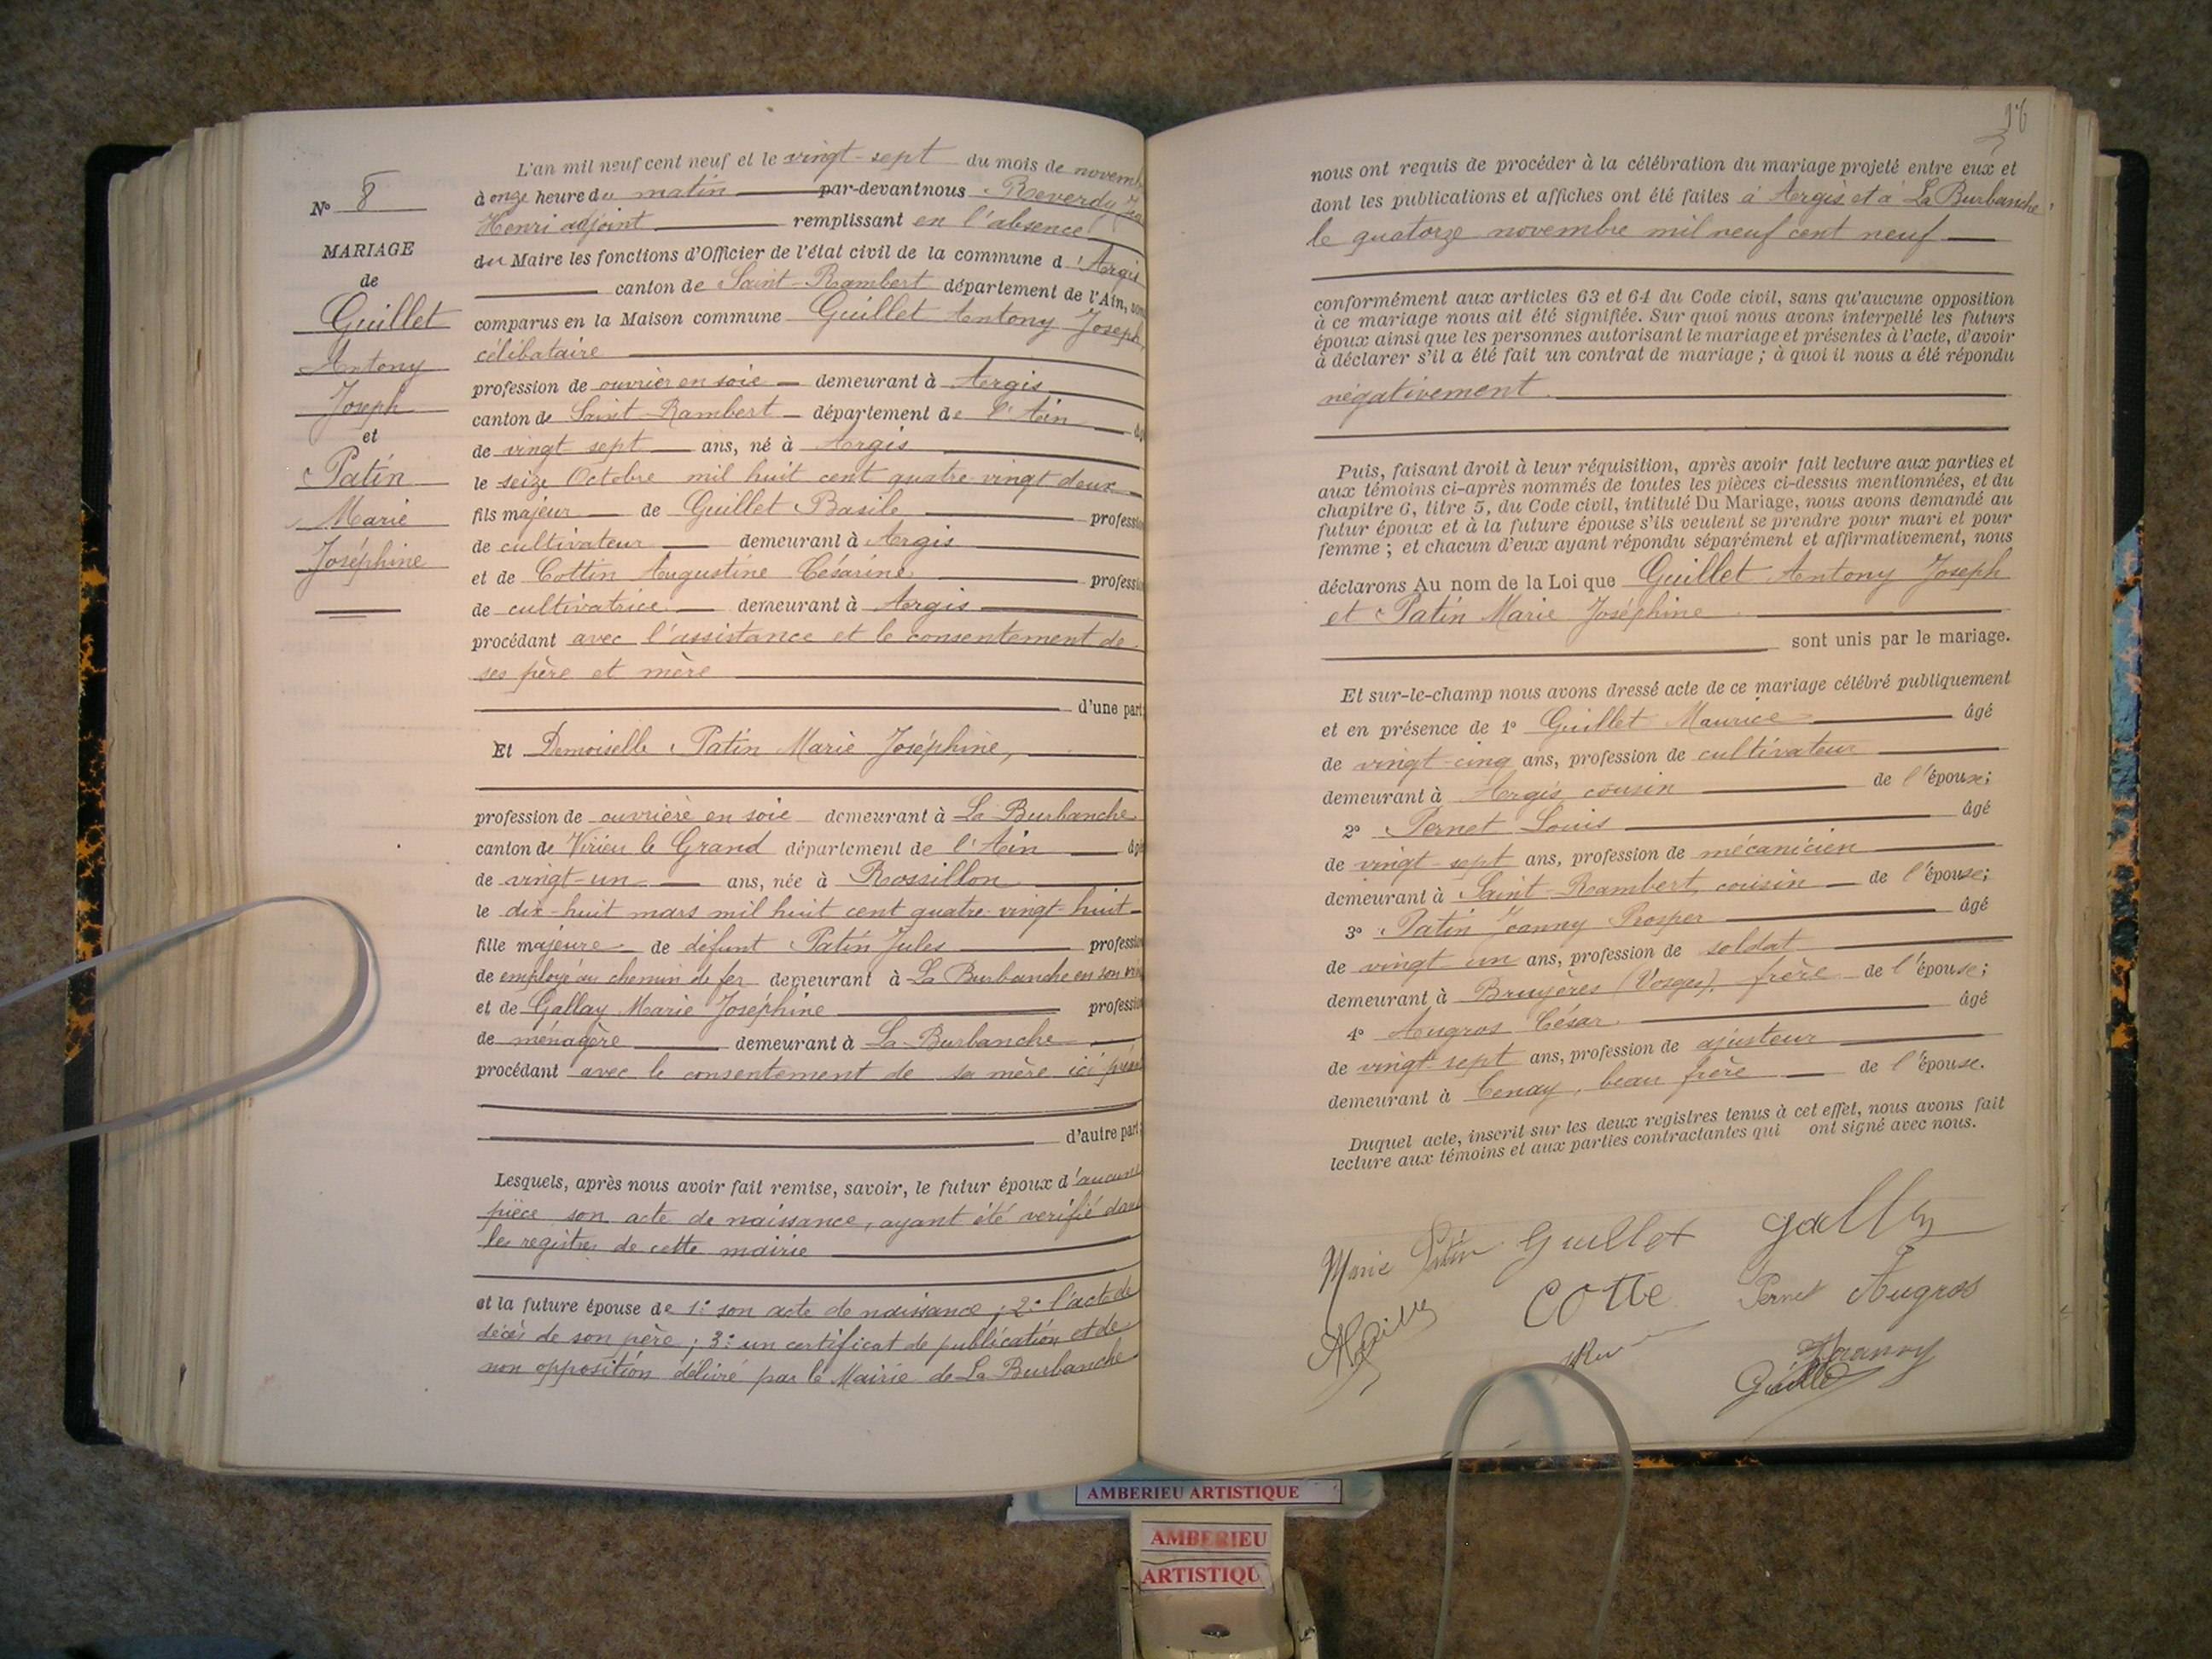 N° 8
MARIAGE
de
Guillet
Antony
Joseph
et
Patin
Marie
Joséphine
L'an mil neuf cent neuf et le vingt-sept du mois de novemb
à onze heure du matin par-devant nous Reverdy
Henri adjoint remplissant en l'absence
du Maire les fonctions d'Officier de l'état civil de la commune d'Argis
canton de Saint-Rambert département de l'Ain, sont
comparus en la Maison commune Guillet Antony Joseph,
célibataire
profession de ouvrier en soie demeurant à Argis
canton de Saint-Rambert département de l'Ain âgé
de vingt-sept ans, né à Argis
le seize Octobre mil huit cent quatre-vingt deux
fils majeur de Guillet Basile profession
de cultivateur demeurant à Argis
et de Cottin Augustine Césarine profession
de cultivatrice demeurant à Argis
procédant avec l'assistance et le consentement de
ses père et mère
d'une part;
Et Demoiselle Patin Marie Joséphine,
profession de ouvrière en soie demeurant à La Burbanche
canton de Virieu le Grand département de l'Ain âgé
de vingt-un ans, née à Rossillon
le dix-huit mars mil huit cent quatre-vingt-huit
fille majeure de défunt Patin Jules profession
de employé au chemin de fer demeurant à La Burbanche en son viv
et de Gallay Marie Joséphine profession
de ménagère demeurant à La Burbanche
procédant avec le consentement de sa mère ici prés
d'autre part;
Lesquels, après nous avoir fait remise, savoir, le futur époux d'aucune
pièce son acte de naissance, ayant été verifié dans
les registres de cette mairie
et la future épouse de 1° son acte de naissance; 2° l'acte de
décès de son père; 3° un certificat de publication et de
non opposition délivré par le Mairie de La Burbanche
16
nous ont requis de procéder à la célébration du mariage projeté entre eux et
dont les publications et affiches ont été faites à Argis et à La Burbanche
le quatorze novembre mil neuf cent neuf
conformément aux articles 63 et 64 du Code civil, sans qu'aucune opposition
à ce mariage nous ait été signifiée. Sur quoi nous avons interpellé les futurs
époux ainsi que les personnes autorisant le mariage et présentes à l'acte, d'avoir
à déclarer s'il a été fait un contrat de mariage; à quoi il nous a été répondu
négativement
Puis, faisant droit à leur réquisition, après avoir fait lecture aux parties et
aux témoins ci-après nommés de toutes les pièces ci-dessus mentionnées, et du
chapitre 6, titre 5, du Code civil, intitulé Du Mariage, nous avons demandé au
futur époux et à la future épouse s'ils veulent se prendre pour mari et pour
femme; et chacun d'eux ayant répondu séparément et affirmativement, nous
déclarons Au nom de la Loi que Guillet Antony Joseph
et Patin Marie Joséphine
sont unis par le mariage.
Et sur-le-champ nous avons dressé acte de ce mariage célébré publiquement
et en présence de 1° Guillet Maurice âgé
de vingt-cinq ans, profession de cultivateur
demeurant à Argis cousin de l'époux;
2° Pernet Louis âgé
de vingt-sept ans, profession de mécanicien
demeurant à Saint-Rambert, cousin de l'épouse;
3° Patin Joanny Prosper âgé
de vingt un ans, profession de soldat
demeurant à Bruyères (Vosges), frère de l'épouse;
4° Augros César âgé
de vingt-sept ans, profession de ajusteur
demeurant à Tenay, beau frère de l'épouse.
Duquel acte, inscrit sur les deux registres tenus à cet effet, nous avons fait
lecture aux témoins et aux parties contractantes qui ont signé avec nous.
Marie Patin Guillet
Pernet Augros
AMBERIEU ARTISTIQUE
AMBERIEU
ARTISTIQU